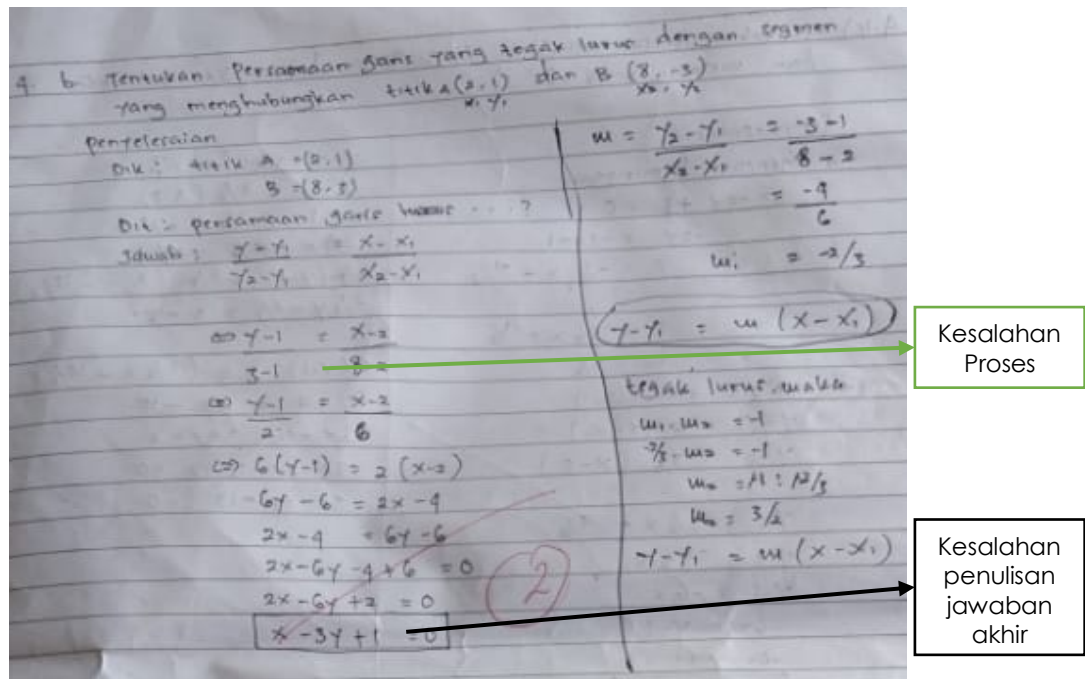 4. b Tentukan Persamaan garis yang tegak lurus dengan segmen
yang menghubungkan titik A (2,1) dan B (8,-3)
x₁ y₁ x₂ y₂
penyelesaian
Dik : titik A = (2,1)
B = (8,-3)
Dit : persamaan garis ...?
Jawab : (y-y₁)/(y₂-y₁) = (x-x₁)/(x₂-x₁)
⇔ (y-1)/(3-1) = (x-2)/(8-2)
⇔ (y-1)/2 = (x-2)/6
⇔ 6(y-1) = 2(x-2)
6y - 6 = 2x - 4
2x - 4 = 6y - 6
2x - 6y - 4 + 6 = 0
2x - 6y + 2 = 0
x - 3y + 1 = 0
2
m = (y₂-y₁)/(x₂-x₁) = (-3-1)/(8-2)
= -4/6
m₁ = -2/3
y-y₁ = m (x-x₁)
tegak lurus, maka
m₁.m₂ = -1
-2/3.m₂ = -1
m₂ = -1 : -2/3
m₂ = 3/2
y-y₁ = m (x-x₁)
Kesalahan
Proses
Kesalahan
penulisan
jawaban
akhir